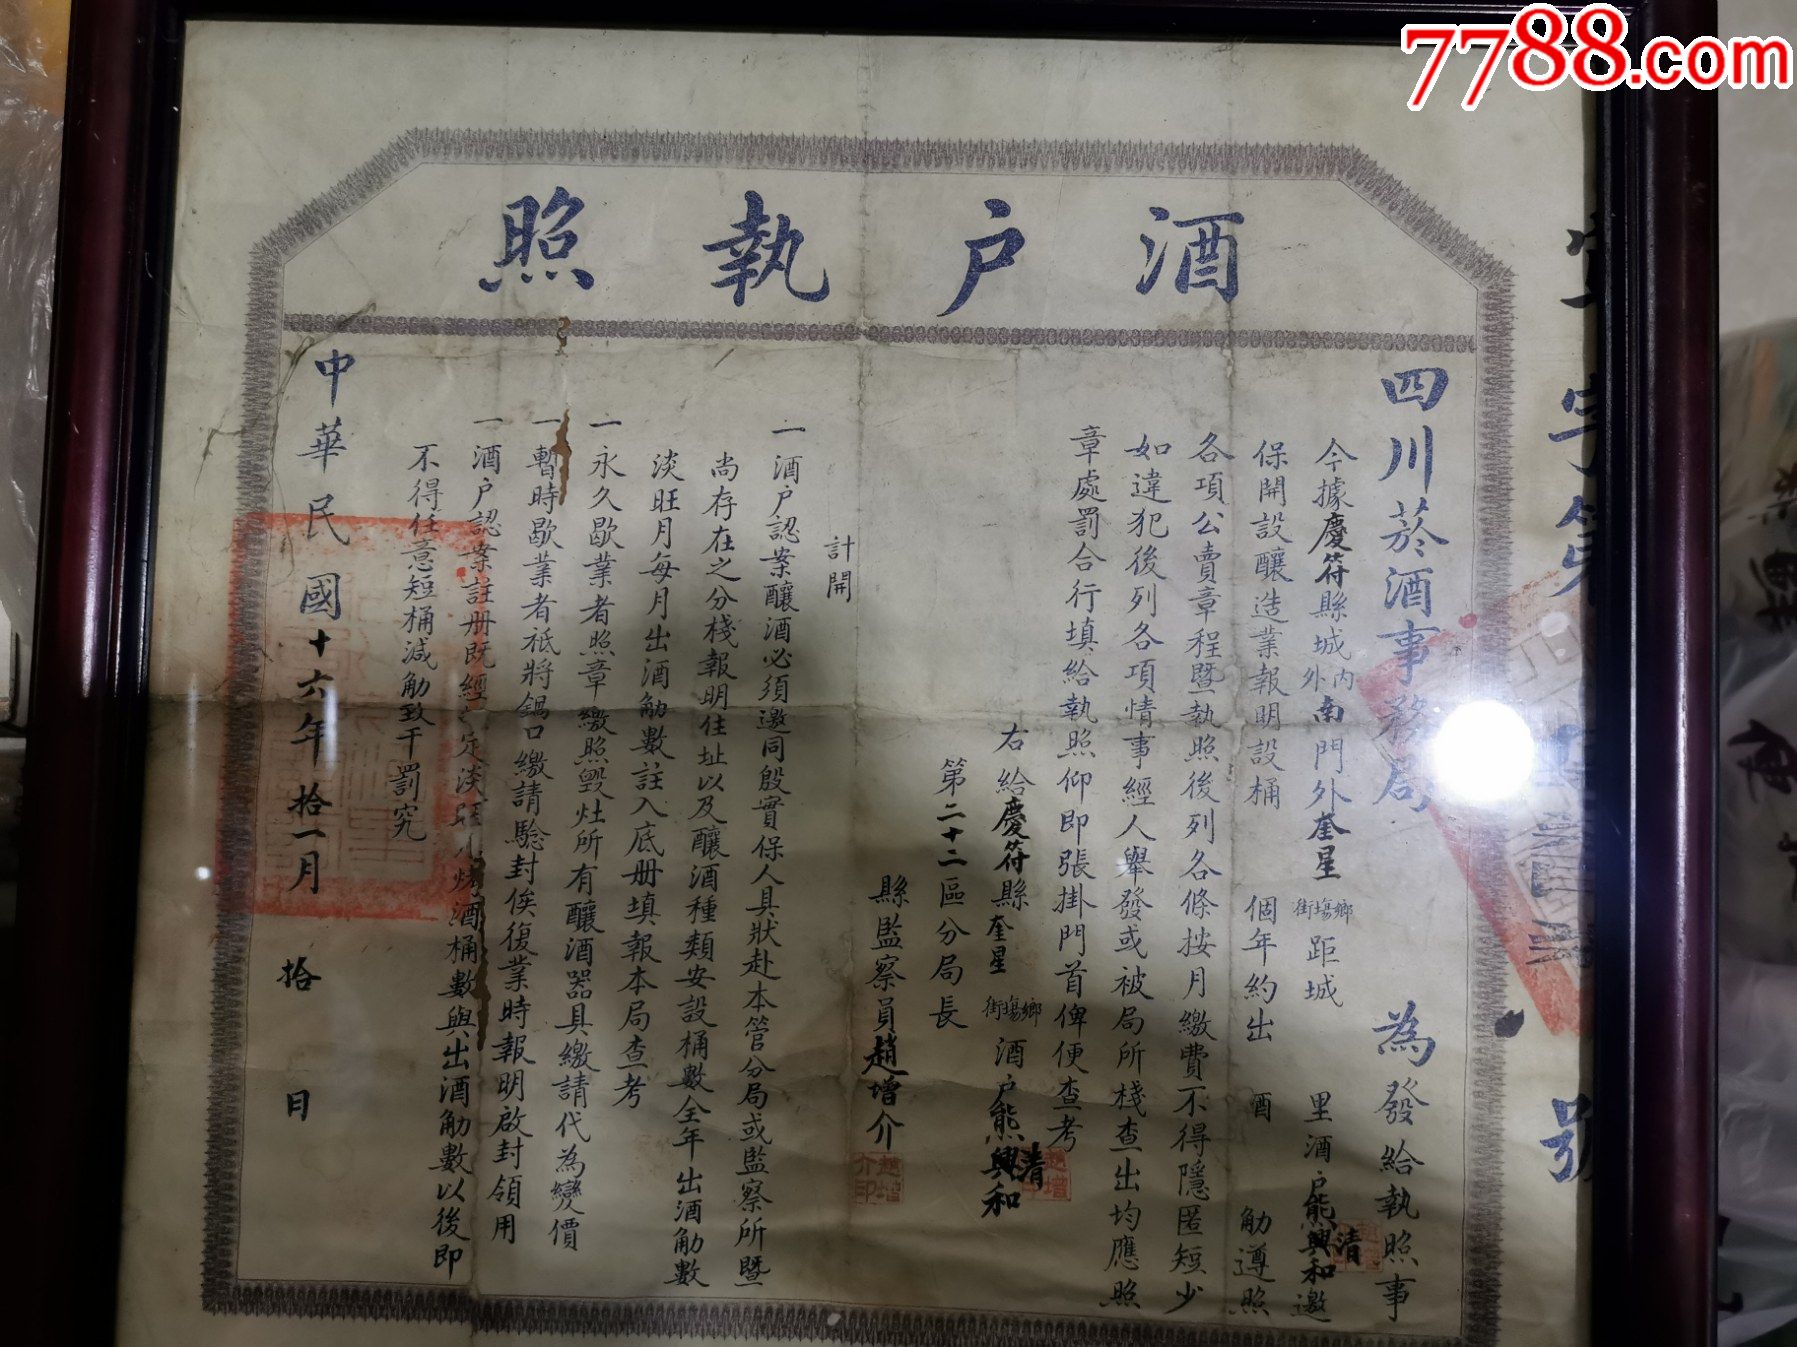 7788.com
酒戶執照
字第
號
四川菸酒事務局 為發給執照事
今據慶符縣城內外南門外奎星鄉場街距城 里酒戶熊興和清邀
保開設釀造業報明設桶 個年約出 酒 觔遵照
各項公賣章程暨執照後列各條按月繳費不得隱匿短少
如違犯後列各項情事經人舉發或被局所棧查出均應照
章處罰合行填給執照仰即張掛門首俾便查考
右給慶符縣奎星鄉場街酒戶熊興和清
第二十二區分局長
縣監察員趙增介
趙增介印
計開
一酒戶認案釀酒必須邀同殷實保人具狀赴本管分局或監察所暨
尚存在之分棧報明住址以及釀酒種類安設桶數全年出酒觔數
淡旺月每月出酒觔數註入底册填報本局查考
一永久歇業者照章繳照毀灶所有釀酒器具繳請代為變價
一暫時歇業者祗將鍋口繳請驗封俟復業時報明啟封領用
一酒戶認案註册既經 定淡旺 烤酒桶數與出酒觔數以後即
不得任意短桶減觔致干罰究
中華民國十六年拾一月拾日